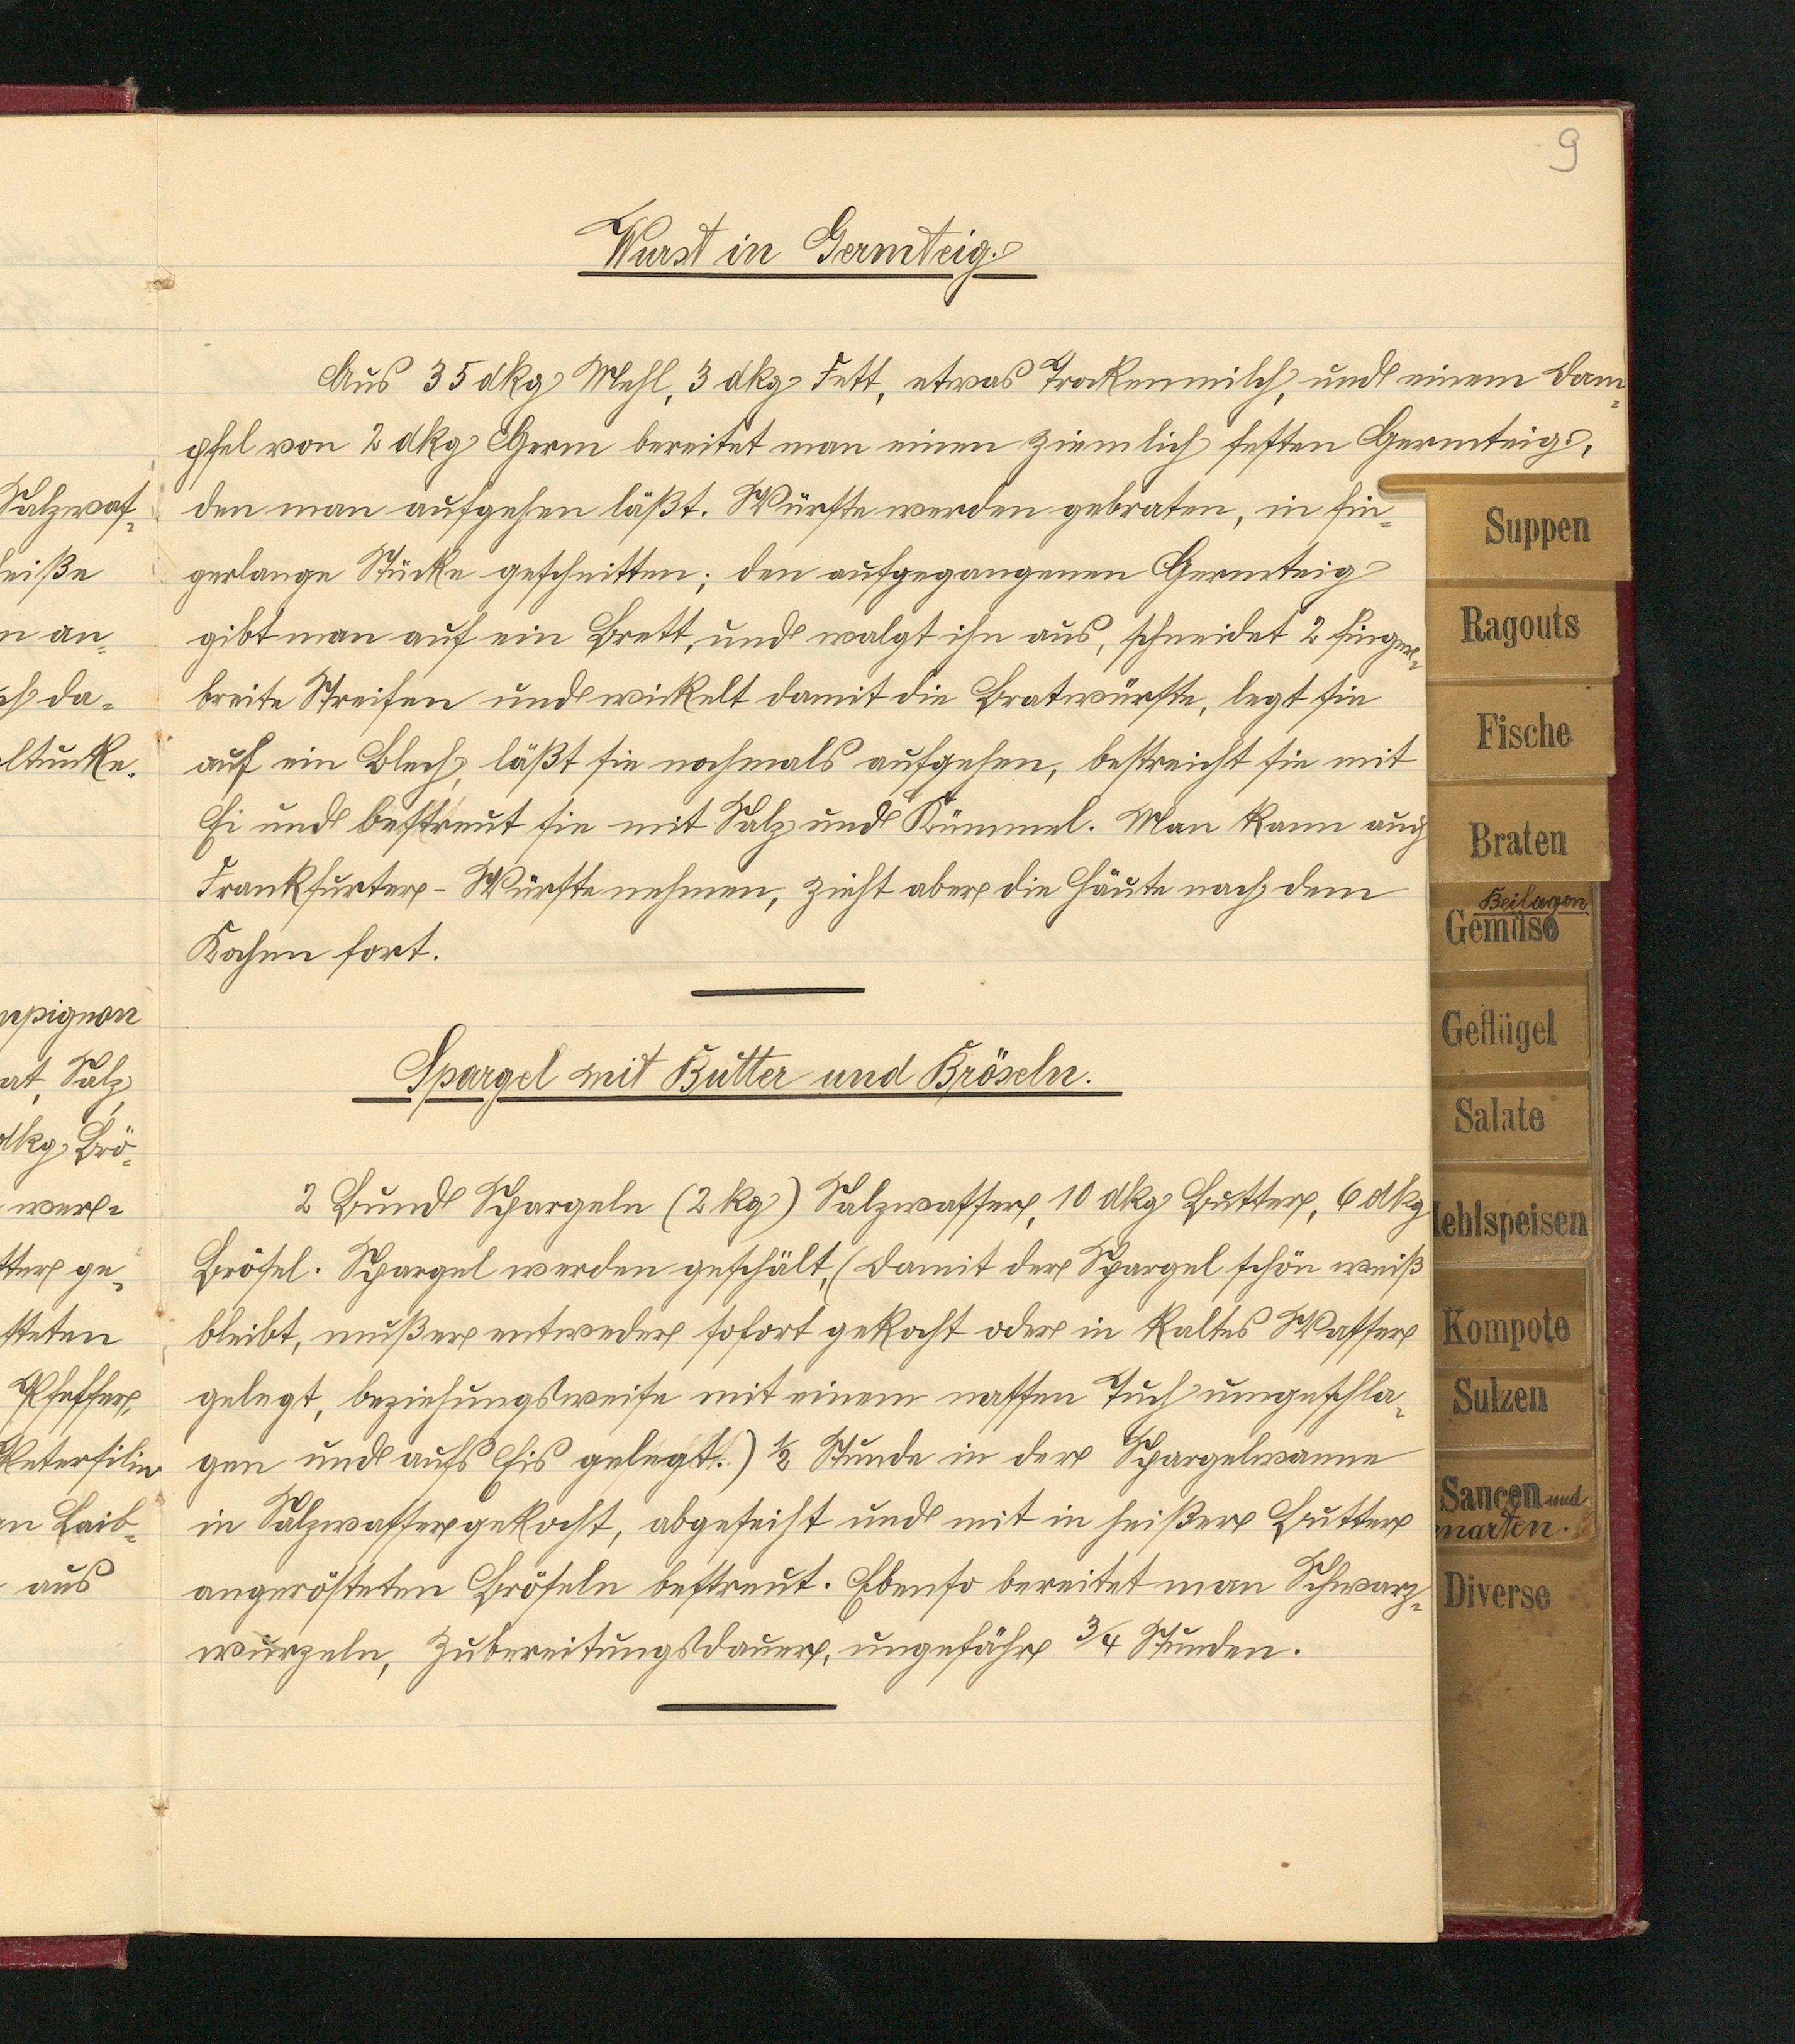 9
Wurst in Germteig.
Aus 35 dkg Mehl, 3 dkg Fett, etwas Trockenmilch, und einem Dam-
pfel von 2 dkg Germ bereitet man einen ziemlich festen Germteig,
den man aufgehen läßt. Würste werden gebraten, in fin-
gerlange Stücke geschnitten; den aufgegangenen Germteig
gibt man auf ein Brett, und walgt ihn aus, schneidet 2 finger-
breite Streifen und wickelt damit die Bratwürste, legt sie
auf ein Blech, läßt sie nochmals aufgehen, bestreicht sie mit
Ei und bestreut sie mit Salz und Kümmel. Man kann auch
Frankfurter-Würste nehmen, zieht aber die Häute nach dem
Kochen fort.
Spargel mit Butter und Bröseln.
2 Bund Spargeln (2 kg) Salzwasser, 10 dkg Butter, 6 dkg
Brösel. Spargel werden geschält, (damit der Spargel schön weiß
bleibt, muß er entweder sofort gekocht oder in kaltes Wasser
gelegt, beziehungsweise mit einem nassen Tuch umgeschla-
gen und aufs Eis gelegt.) ½ Stunde in der Spargelwanne
in Salzwasser gekocht, abgeseiht und mit in heißer Butter
angerösteten Bröseln bestreut. Ebenso bereitet man Schwarz-
wurzeln, Zubereitungsdauer, ungefähr ¾ Stunden.
Salzwas-
heiße
n an-
ch da-
ltunke.
mpignon
at, Salz,
dkg Brö-
wer-
tter ge-
steten
Pfeffer,
Petersilie
en Laib-
aus
Suppen
Ragouts
Fische
Braten
Beilagen
Gemüse
Geflügel
Salate
Mehlspeisen
Kompote
Sulzen
Saucen und
narten.
Diverse